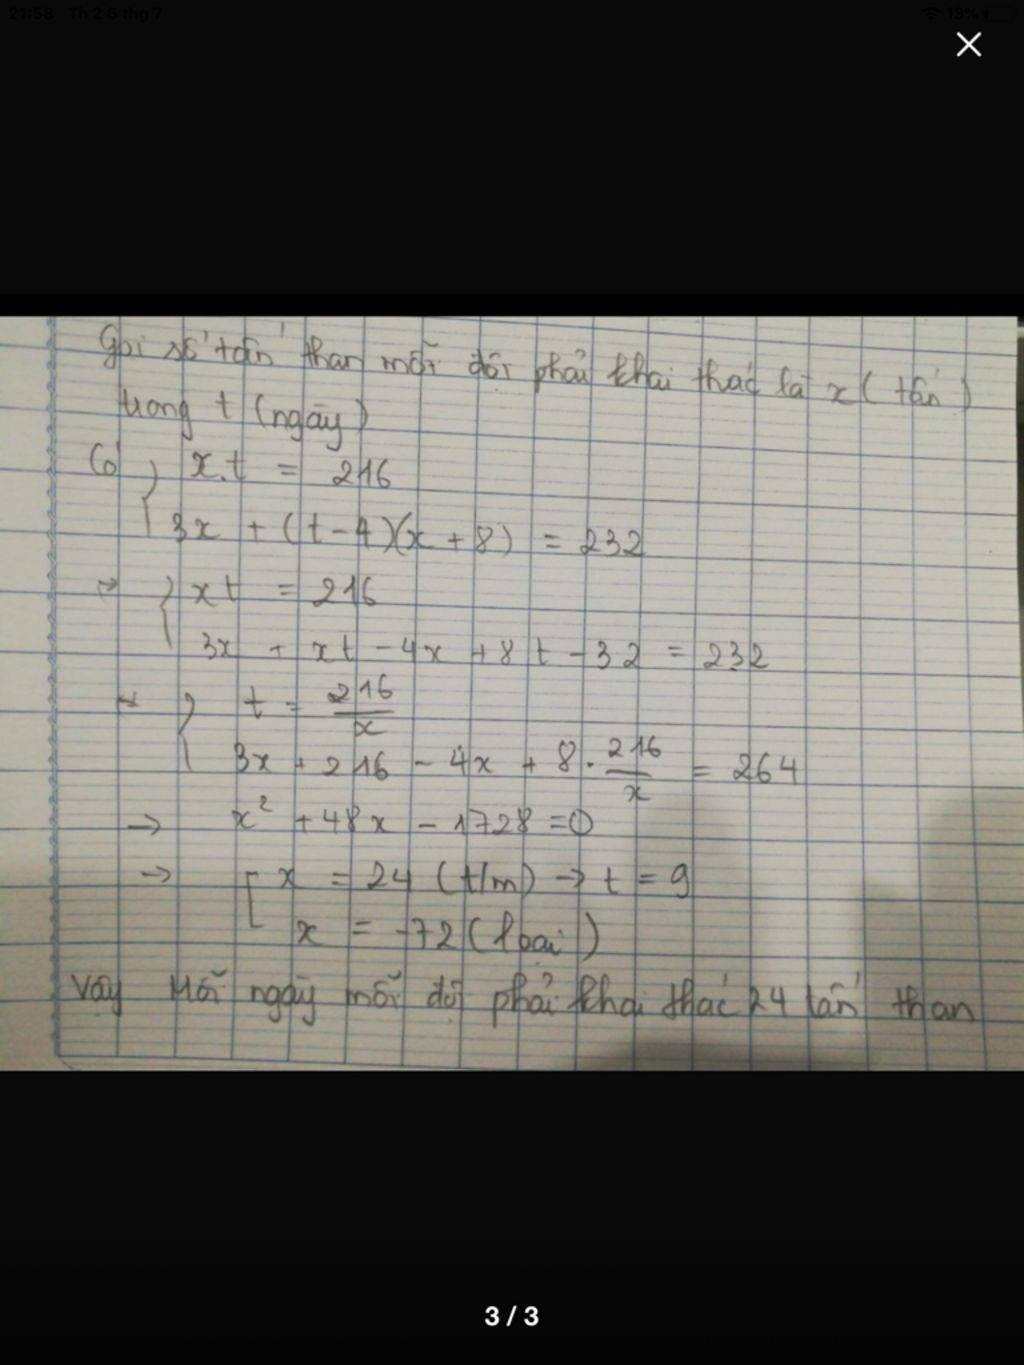 21:58 Th 2 5 thg 7
13%
Gọi số tấn than mỗi đội phải khai thác là x (tấn)
trong t (ngày)
Có { x.t = 216
3x + (t-4)(x+8) = 232
→ { xt = 216
3x + xt - 4x + 8t - 32 = 232
→ { t = 216/x
3x + 216 - 4x + 8.216/x = 264
→ x² + 48x - 1728 = 0
→ [ x = 24 (t/m) → t = 9
x = -72 (loại)
Vậy Mỗi ngày mỗi đội phải khai thác 24 tấn than
3 / 3